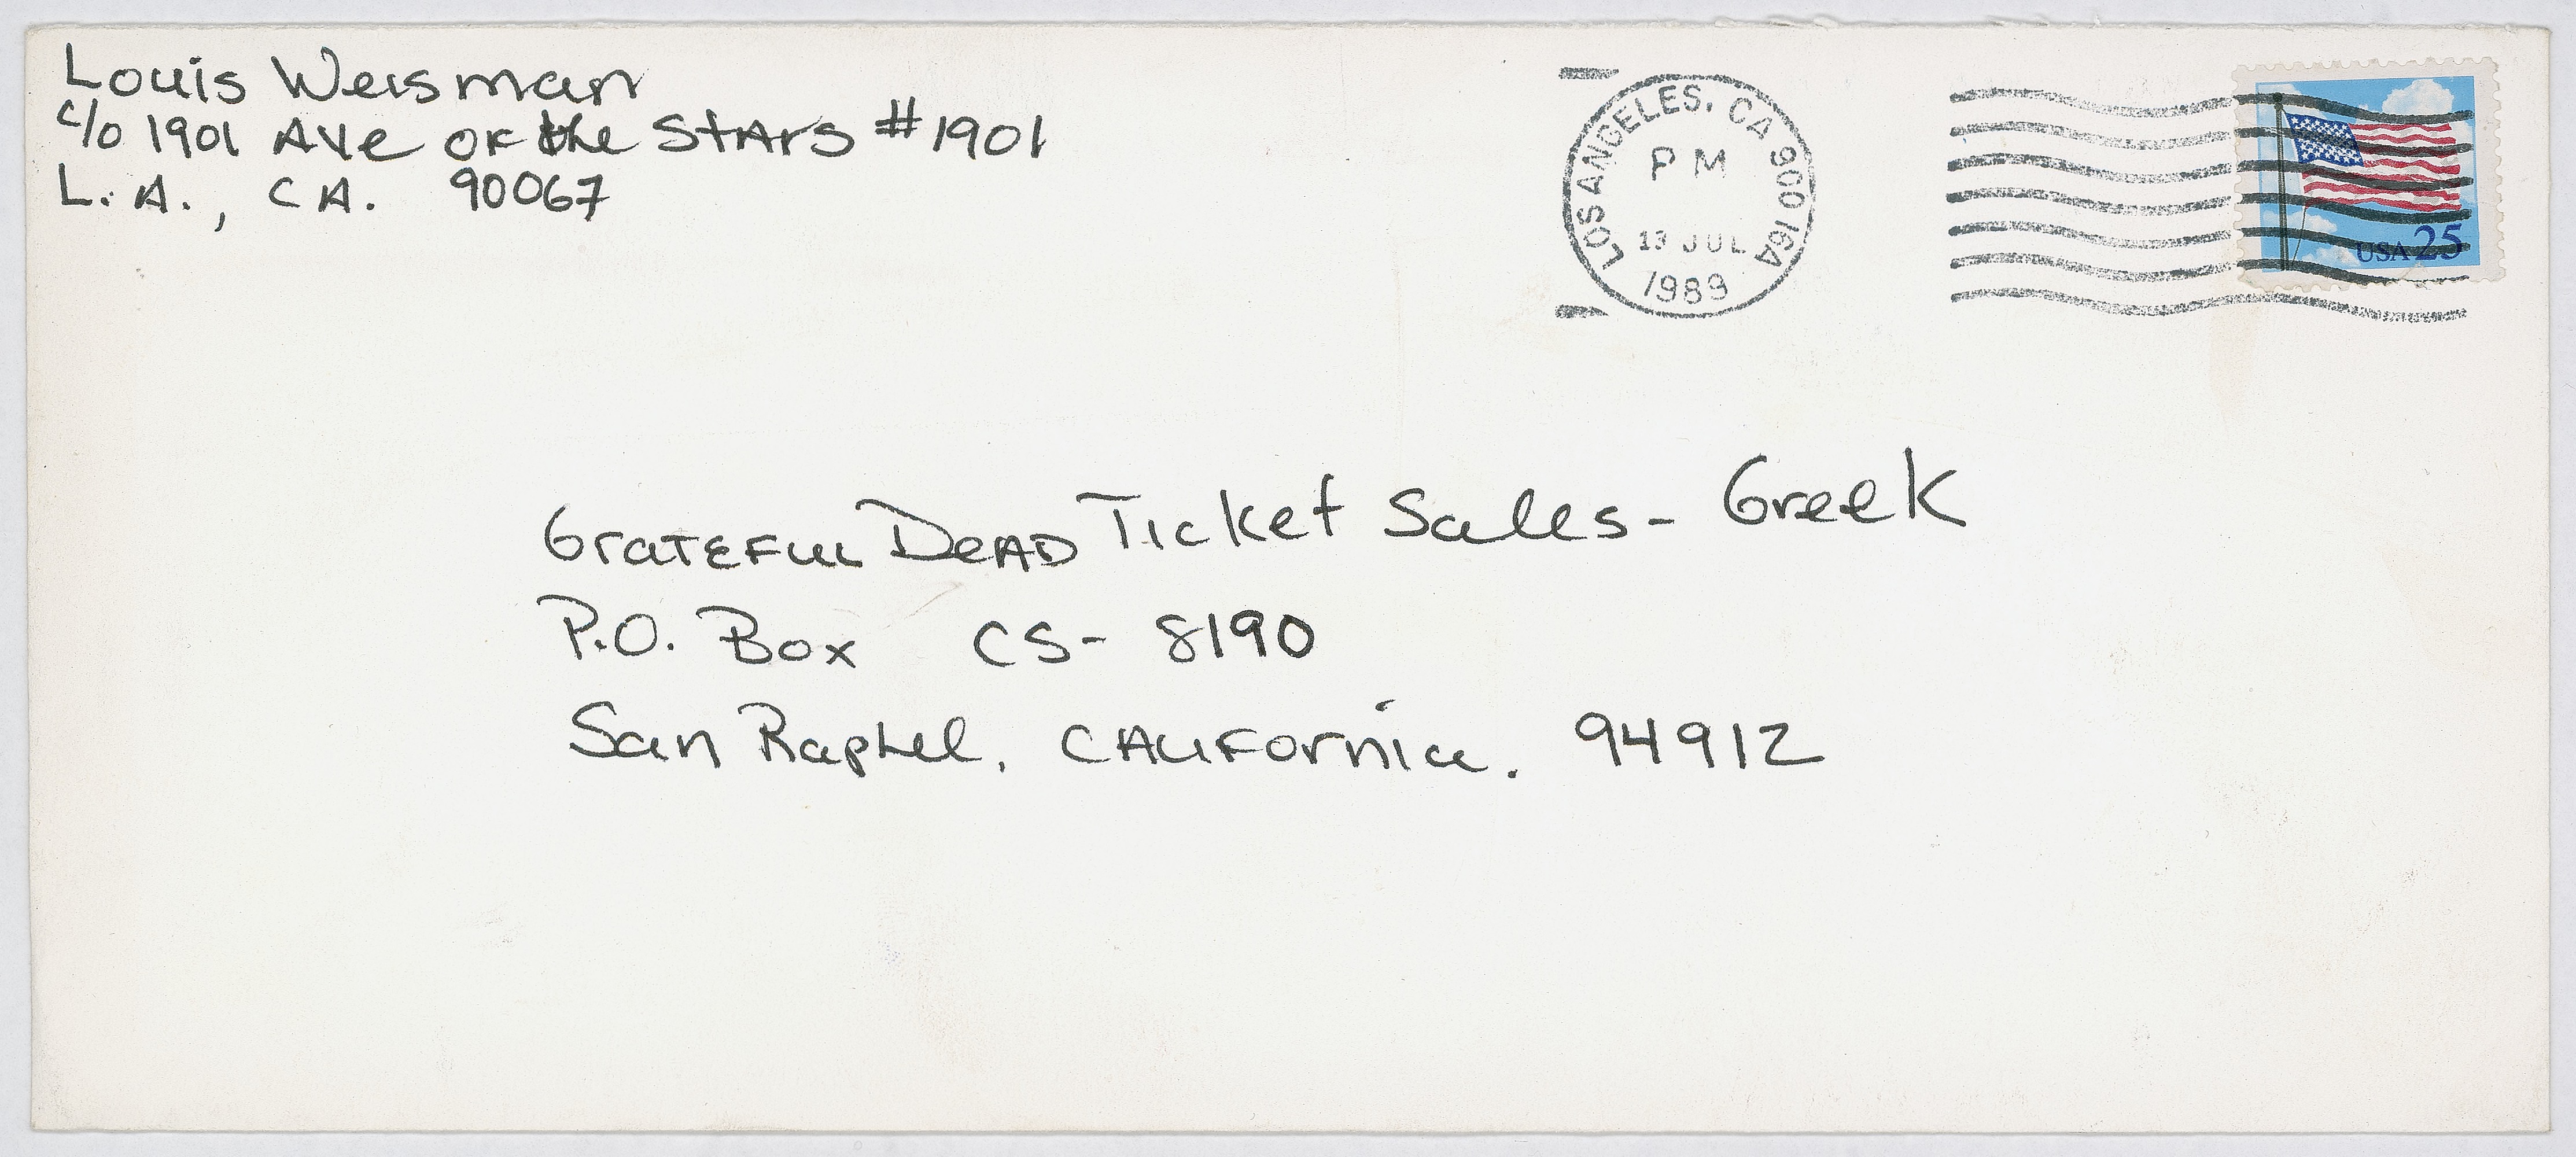 Louis Weisman
c/o 1901 Ave OF the StArs #1901
L.A., CA. 90067
LOS ANGELES, CA 900 16A
PM
13 JUL
1989
USA 25
GraTEFuL DeAD Ticket Sales - Greek
P.O. Box CS- 8190
San Raphel, CALIFornia. 94912